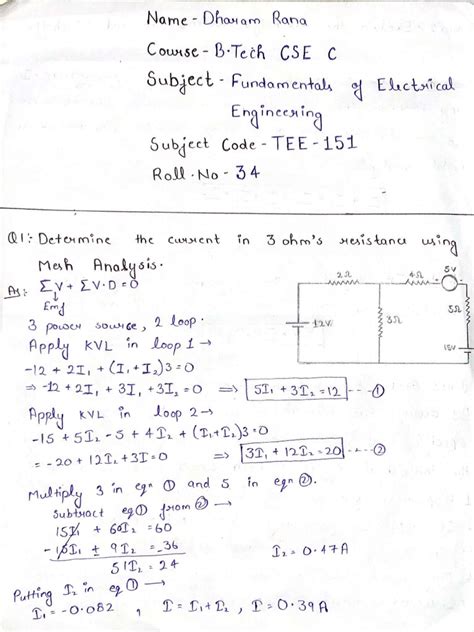 Name - Dharam Rana
Course - B.Tech CSE C
Subject - Fundamentals of Electrical
Engineering
Subject Code - TEE - 151
Roll.No - 34
Q1:- Determine the current in 3 ohm's resistance using
Mesh Analysis.
Ans: ΣV + ΣV.D = 0
↓
Emf
3 power source, 2 loop.
Apply KVL in loop 1 →
-12 + 2I₁ + (I₁+I₂)3 = 0
⇒ -12 + 2I₁ + 3I₁ + 3I₂ = 0 ⇒ 5I₁ + 3I₂ = 12 --- ①
Apply KVL in loop 2 →
-15 + 5I₂ - 5 + 4I₂ + (I₁+I₂)3 = 0
= -20 + 12I₂ + 3I = 0 ⇒ 3I₁ + 12I₂ = 20 --- ②
Multiply 3 in eqn ① and 5 in eqn ②.
Subtract eq① from ② →
15I₁ + 60I₂ = 60
- 15I₁ ± 9I₂ = 36
51I₂ = 24
I₂ = 0.47A
Putting I₂ in eq ① →
I₁ = -0.082 , I = I₁ + I₂ , I = 0.39A
2Ω
4Ω
5V
12V
3Ω
5Ω
15V